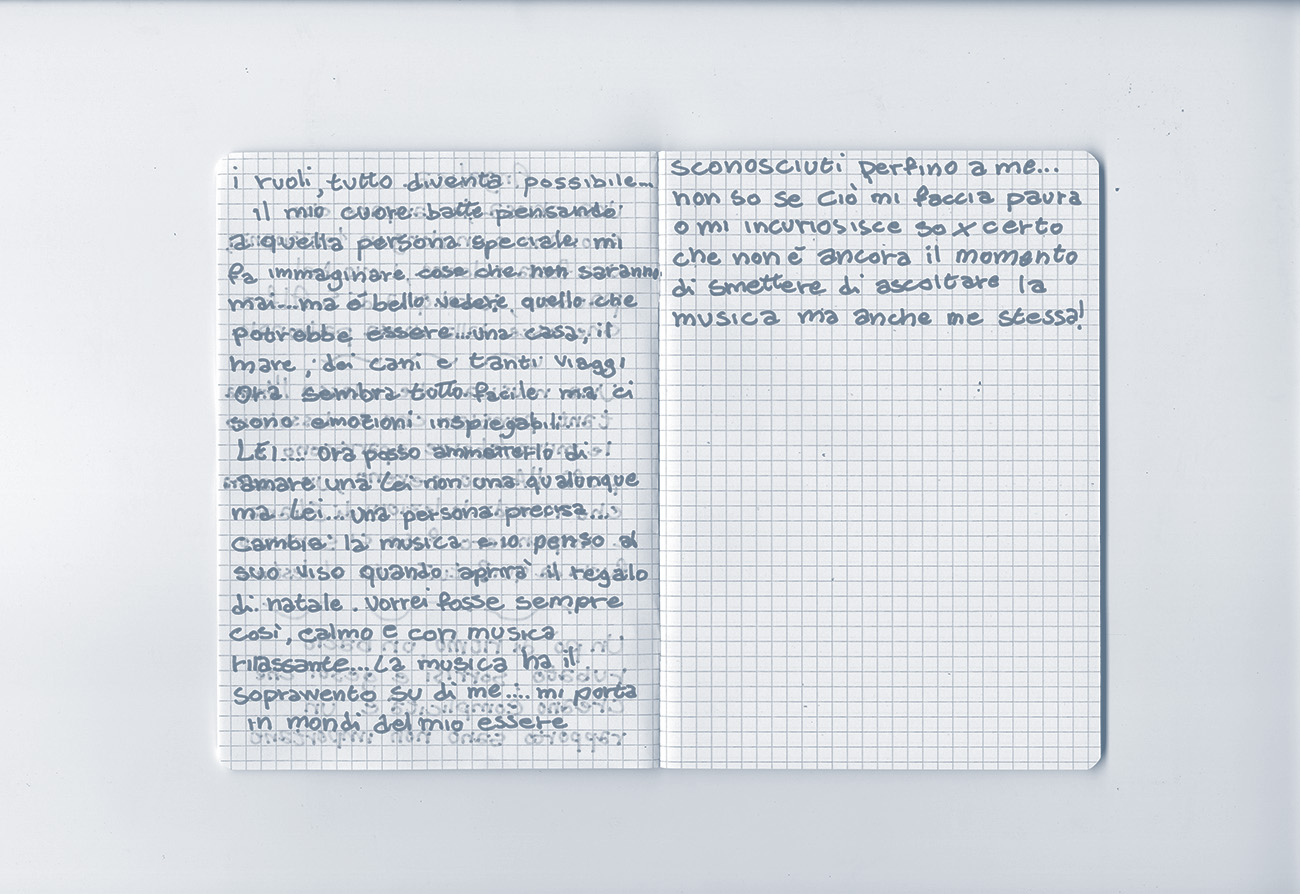 i ruoli, tutto diventa possibile...
il mio cuore batte pensando
a quella persona speciale mi
fa immaginare cose che non saranno
mai... ma è bello vedere quello che
potrebbe essere... una casa, il
mare, dei cani e tanti viaggi
Ora sembra tutto facile ma ci
sono emozioni inspiegabili...
LEI.... ora posso ammetterlo di
amare una lei non una qualunque
ma lei... una persona precisa...
Cambia la musica e io penso al
suo viso quando aprirà il regalo
di natale. vorrei fosse sempre
così, calmo e con musica
rilassante... La musica ha il
sopravvento su di me... mi porta
in mondi del mio essere
sconosciuti perfino a me...
non so se ciò mi faccia paura
o mi incuriosisce so x certo
che non è ancora il momento
di smettere di ascoltare la
musica ma anche me stessa!